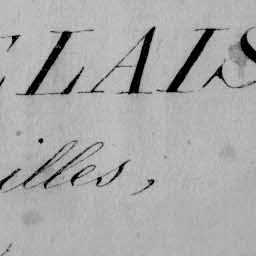 ELAIS
illes,